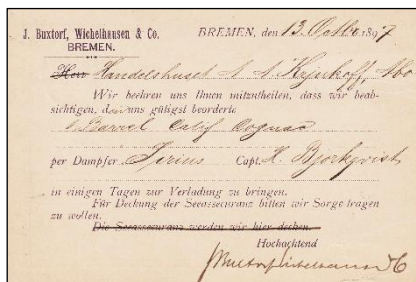 J. Buxtorf, Wichelhausen & Co.
BREMEN.
BREMEN, den 13. Octbr 1897
Herrn Handelshuset
Wir beehren uns Ihnen mitzutheilen, dass wir beab-
sichtigen, den uns gütigst beorderte
1 Barrel Calif Cognac
per Dampfer Sirius Capt. K. Bjorkqvist
in einigen Tagen zur Verladung zu bringen.
Für Deckung der Seeassecuranz bitten wir Sorge tragen
zu wollen.
Die Seeassecuranz werden wir hier decken.
Hochachtend